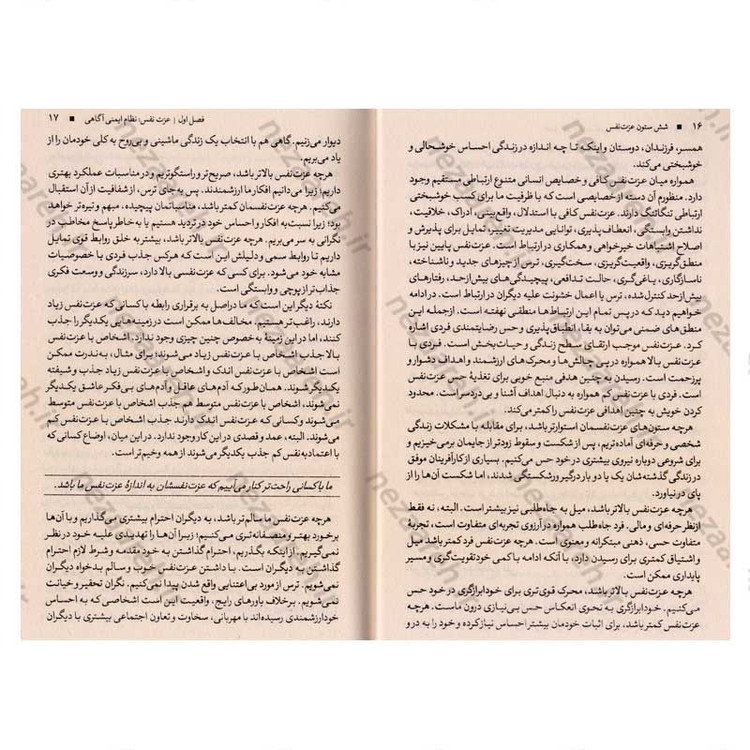 ۱۶ ■ شش ستون عزت‌نفس
همسر، فرزندان، دوستان و اینکه تا چه اندازه در زندگی احساس خوشحالی و
خوشبختی می‌کند.
همواره میان عزت‌نفس کافی و خصایص انسانی متنوع ارتباطی مستقیم وجود
دارد. منظورم آن دسته از خصایصی است که با ظرفیت ما برای کسب خوشبختی
ارتباطی تنگاتنگ دارند. عزت‌نفس کافی با استدلال، واقع‌بینی، ادراک، خلاقیت،
نداشتن وابستگی، انعطاف‌پذیری، توانایی مدیریت تغییر، تمایل برای پذیرش و
اصلاح اشتباهات خیرخواهی و همکاری در ارتباط است. عزت‌نفس پایین نیز با
منطق‌گریزی، واقعیت‌گریزی، سخت‌گیری، ترس از چیزهای جدید و ناشناخته،
ناسازگاری، یاغی‌گری، حالت تدافعی، پیچیدگی‌های بیش‌ازحد، رفتارهای
بیش‌ازحد کنترل‌شده، ترس یا اعمال خشونت علیه دیگران در ارتباط است. در ادامه
خواهیم دید که در پس تمام این ارتباط‌ها منطقی نهفته است. از جمله
منطق‌های ضمنی می‌توان به بقا، انطباق‌پذیری و حس رضایتمندی فردی اشاره
کرد. عزت‌نفس موجب ارتقای سطح زندگی و حیات‌بخش است. فردی با
عزت‌نفس بالا همواره در پی چالش‌ها و محرک‌های ارزشمند و اهداف دشوار و
پرزحمت است. رسیدن به چنین هدفی منبع خوبی برای تغذیهٔ حس عزت‌نفس
است. فردی با عزت‌نفس کم همواره به دنبال اهداف آشنا و بی‌دردسر است. محدود
کردن خویش به چنین اهدافی عزت‌نفس را کمتر می‌کند.
هرچه ستون‌های عزت‌نفسمان استوارتر باشد، برای مقابله با مشکلات زندگی
شخصی و حرفه‌ای آماده‌تریم، پس از شکست و سقوط زودتر از جایمان برمی‌خیزیم و
برای شروعی دوباره نیروی بیشتری در خود حس می‌کنیم. بسیاری از کارآفرینان موفق
در زندگی گذشته‌شان یک یا دو بار درگیر ورشکستگی شدند، اما شکست آن‌ها را از
پای در نیاورد.
هرچه عزت‌نفس بالاتر باشد، میل به جاه‌طلبی نیز بیشتر است. البته، نه فقط
از نظر حرفه‌ای و مالی. فرد جاه‌طلب همواره در آرزوی تجربه‌ای متفاوت است، تجربهٔ
متفاوت حسی، ذهنی مبتکرانه و معنوی است. هرچه عزت‌نفس فرد کمتر باشد
و اشتیاق کمتری برای رسیدن دارد، با آنکه ادامه با کمی خودتقویت‌گری و مسیر
پایداری ممکن است.
هرچه عزت‌نفس بالاتر باشد، محرک قوی‌تری برای خودابرازگری در خود حس
می‌کنیم. خودابرازگری به نحوی انعکاس حس بی‌نیازی درون ماست. هرچه
عزت‌نفس کمتر باشد، برای اثبات خودمان بیشتر احساس نیاز کرده و خود را به در و
فصل اول | عزت نفس: نظام ایمنی آگاهی ■ ۱۷
دیوار می‌زنیم. گاهی هم با انتخاب یک زندگی ماشینی و بی‌روح به کلی خودمان را از
یاد می‌بریم.
هرچه عزت‌نفس بالاتر باشد، صریح‌تر و راستگوتریم و در مناسبات عملکرد بهتری
داریم؛ زیرا می‌دانیم افکار ما ارزشمندند. پس به جای ترس، از شفافیت از آن استقبال
می‌کنیم. هرچه عزت‌نفسمان کمتر باشد، مناسباتمان پیچیده، مبهم و تیره‌تر خواهد
بود؛ زیرا نسبت به افکار و احساس خود در تردید هستیم یا به خاطر پاسخ مخاطب در
نگرانی به سر می‌بریم. هرچه عزت‌نفس بالاتر باشد، بیشتر به خلق روابط قوی تمایل
داریم تا روابط سمی و دلیلش این است که هرکس جذب فردی با خصوصیات
مشابه خود می‌شود. برای کسی که عزت‌نفسی بالا دارد، سرزندگی و وسعت فکری
جذاب‌تر از پوچی و وابستگی است.
نکتهٔ دیگر این است که ما دراصل به برقراری رابطه با کسانی که عزت‌نفس زیاد
دارند، راغب‌تر هستیم. مخالف‌ها ممکن است در زمینه‌هایی یکدیگر را جذب
کنند، اما در این زمینهٔ به خصوص چنین چیزی وجود ندارد. اشخاص با عزت‌نفس
بالا جذب اشخاص با عزت‌نفس زیاد می‌شوند؛ برای مثال، به‌ندرت ممکن
است اشخاص با عزت‌نفس اندک و اشخاص با عزت‌نفس زیاد جذب و شیفته
یکدیگر شوند. همان‌طور که آدم‌های عاقل و آدم‌های بی‌فکر عاشق یکدیگر
نمی‌شوند، اشخاص با عزت‌نفس متوسط هم جذب اشخاص با عزت‌نفس متوسط
می‌شوند و کسانی که عزت‌نفس اندک دارند جذب اشخاص با عزت‌نفس کم
می‌شوند. البته، عمد و قصدی در این کار وجود ندارد. در این میان، اوضاع کسانی که
با اعتمادبه‌نفس کم جذب یکدیگر می‌شوند از همه وخیم‌تر است.
ما با کسانی راحت‌تر کنار می‌آییم که عزت نفسشان به اندازهٔ عزت نفس ما باشد.
هرچه عزت‌نفس ما سالم‌تر باشد، به دیگران احترام بیشتری می‌گذاریم و با آن‌ها
برخورد بهتر و منصفانه‌تری می‌کنیم؛ زیرا آن‌ها را تهدیدی علیه خود در نظر
نمی‌گیریم. از اینکه بگذریم، احترام گذاشتن به خود مقدمه و شرط لازم احترام
گذاشتن به دیگران است. با داشتن عزت‌نفس خوب و سالم بدخواه دیگران
نمی‌شویم. ترس از مورد بی‌اعتنایی واقع شدن پیدا نمی‌کنیم. نگران تحقیر و خیانت
نمی‌شویم. برخلاف باورهای رایج، واقعیت این است اشخاصی که به احساس
خودارزشمندی رسیده‌اند با مهربانی، سخاوت و تعاون اجتماعی بیشتری با دیگران